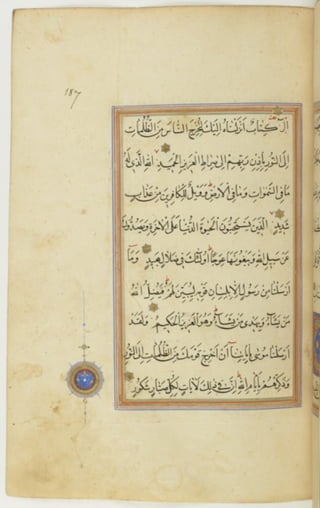 187
الر كتاب انزلناه اليك لتخرج الناس من الظلمات
الى النور باذن ربهم الى صراط العزيز الحميد الله الذي له
ما في السموات وما في الارض وويل للكافرين من عذاب
شديد الذين يستحبون الحيوة الدنيا على الاخرة ويصدون
عن سبيل الله ويبغونها عوجا اولئك في ضلال بعيد وما
ارسلنا من رسول الا بلسان قومه ليبين لهم فيضل الله
من يشاء ويهدي من يشاء وهو العزيز الحكيم ولقد
ارسلنا موسى باياتنا ان اخرج قومك من الظلمات الى النور
وذكرهم بايام الله ان في ذلك لايات لكل صبار شكور